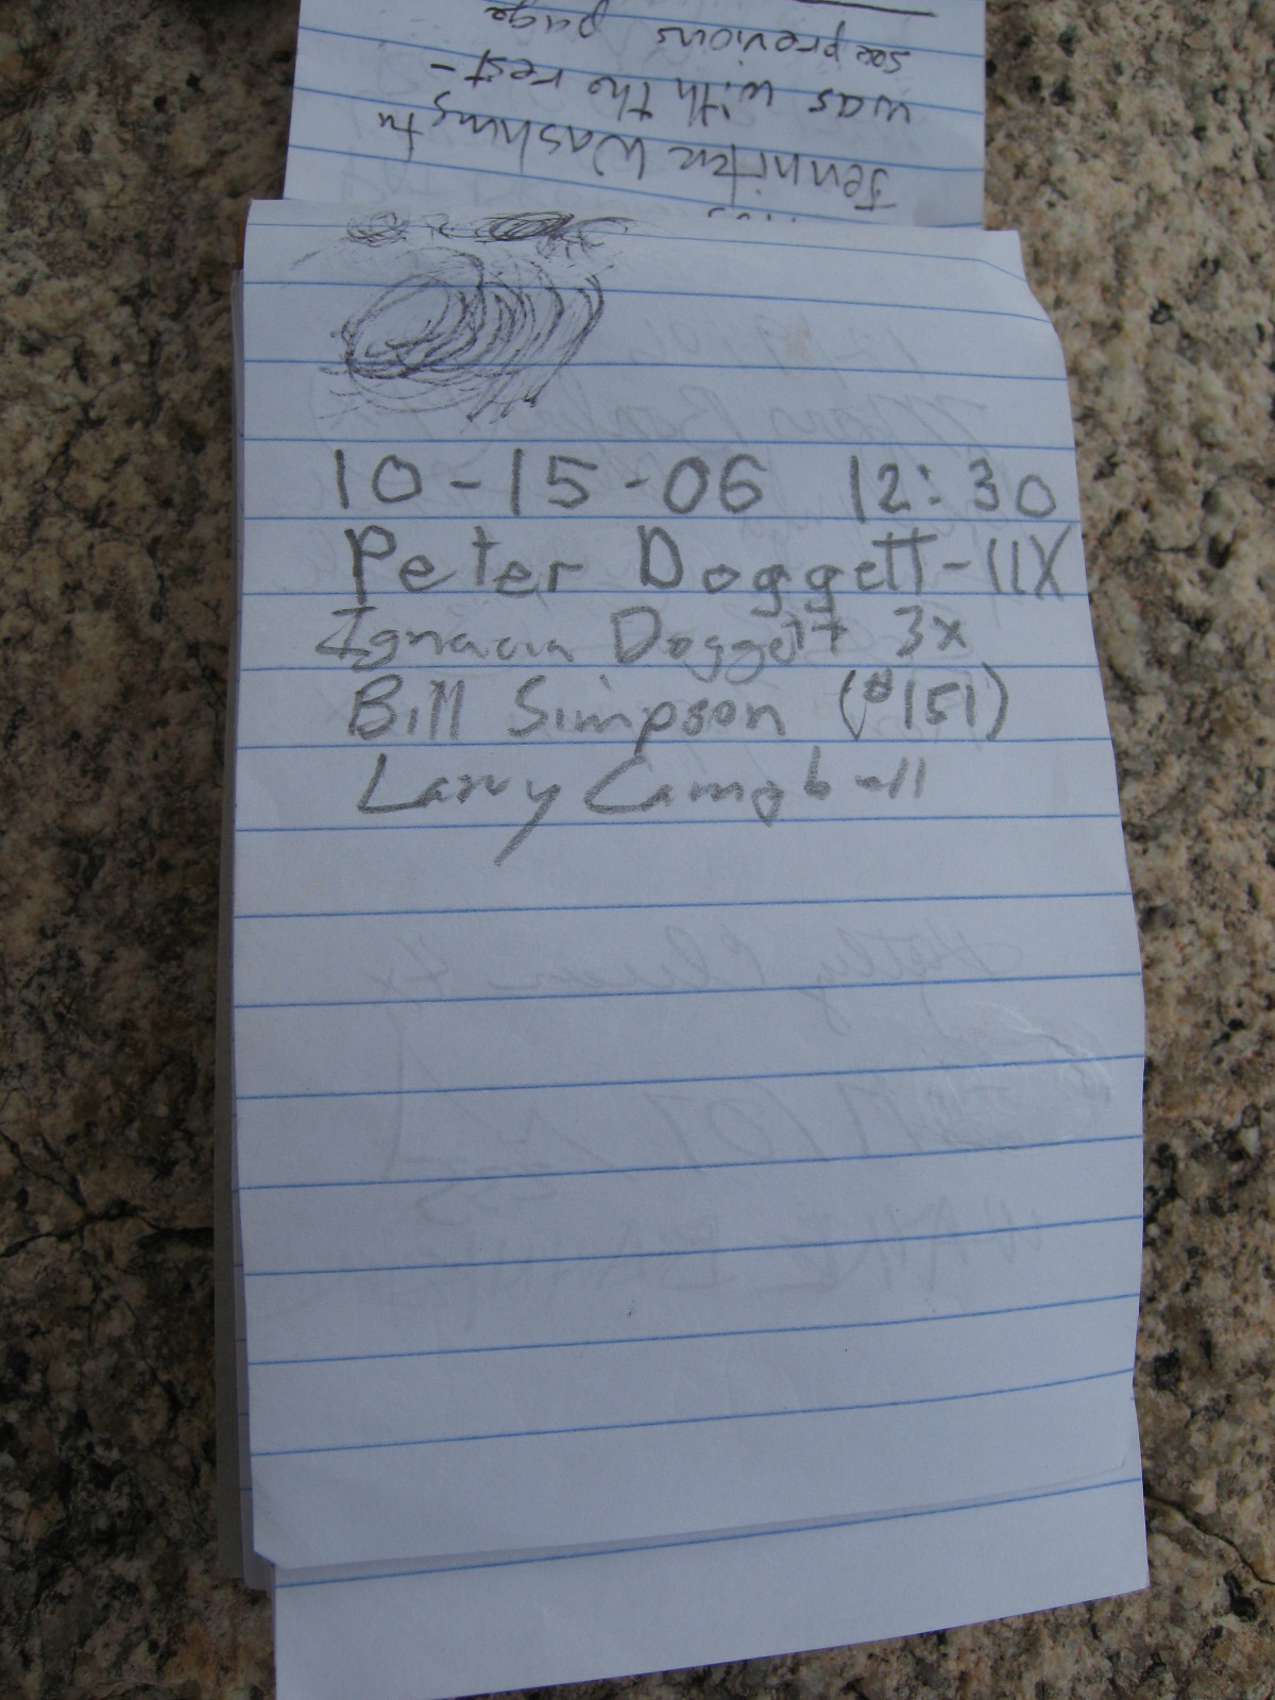 Jennifer Washington
was with the rest -
see previous page
10-15-06 12:30
Peter Doggett-11X
Ignacia Doggett 3x
Bill Simpson (#151)
Larry Campbell